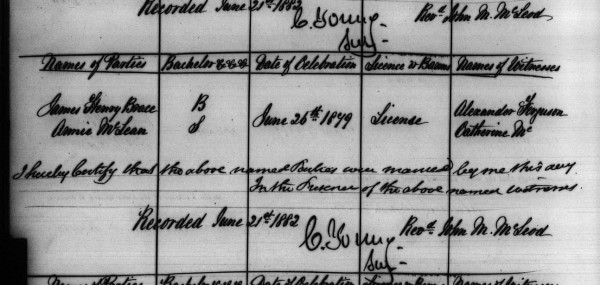 Recorded June 21st 1882 C. Young Rev.d John M. McLeod
Sur
Names of Parties Bachelor &c &c &c Date of Celebration Licence or Banns Names of Witnesses
James Henry Brace B June 26th 1879 License Alexander Ferguson
Annie McLean S Catherine Mc
I hereby Certify that the above named Parties were married by me this day
In the Presence of the above named witnesses.
Recorded June 21st 1882 C. Young Rev.d John M. McLeod
Sur
Names of Parties Date of Celebration Names of Witnesses